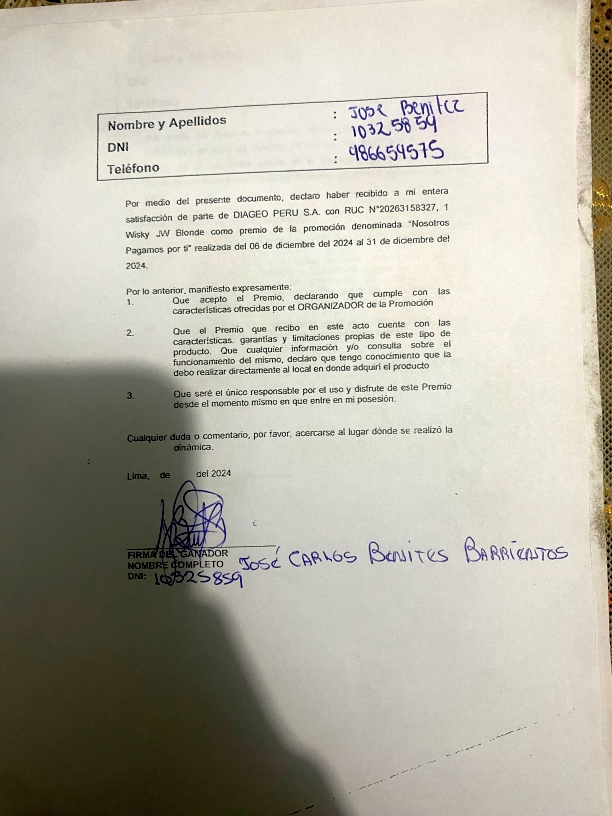 Nombre y Apellidos : Jose Benitez
DNI : 10325859
Teléfono : 986659575
Por medio del presente documento, declaro haber recibido a mi entera
satisfacción de parte de DIAGEO PERU S.A. con RUC N°20263158327, 1
Wisky JW Blonde como premio de la promoción denominada "Nosotros
Pagamos por ti" realizada del 06 de diciembre del 2024 al 31 de diciembre del
2024.
Por lo anterior, manifiesto expresamente:
1. Que acepto el Premio, declarando que cumple con las
características ofrecidas por el ORGANIZADOR de la Promoción
2. Que el Premio que recibo en este acto cuenta con las
características, garantías y limitaciones propias de este tipo de
producto. Que cualquier información y/o consulta sobre el
funcionamiento del mismo, declaro que tengo conocimiento que la
debo realizar directamente al local en donde adquirí el producto
3. Que seré el único responsable por el uso y disfrute de este Premio
desde el momento mismo en que entre en mi posesión.
Cualquier duda o comentario, por favor, acercarse al lugar dónde se realizó la
dinámica.
Lima, de del 2024
FIRMA DEL GANADOR
NOMBRE COMPLETO JOSÉ CARLOS BENITES BARRIENTOS
DNI: 10325859